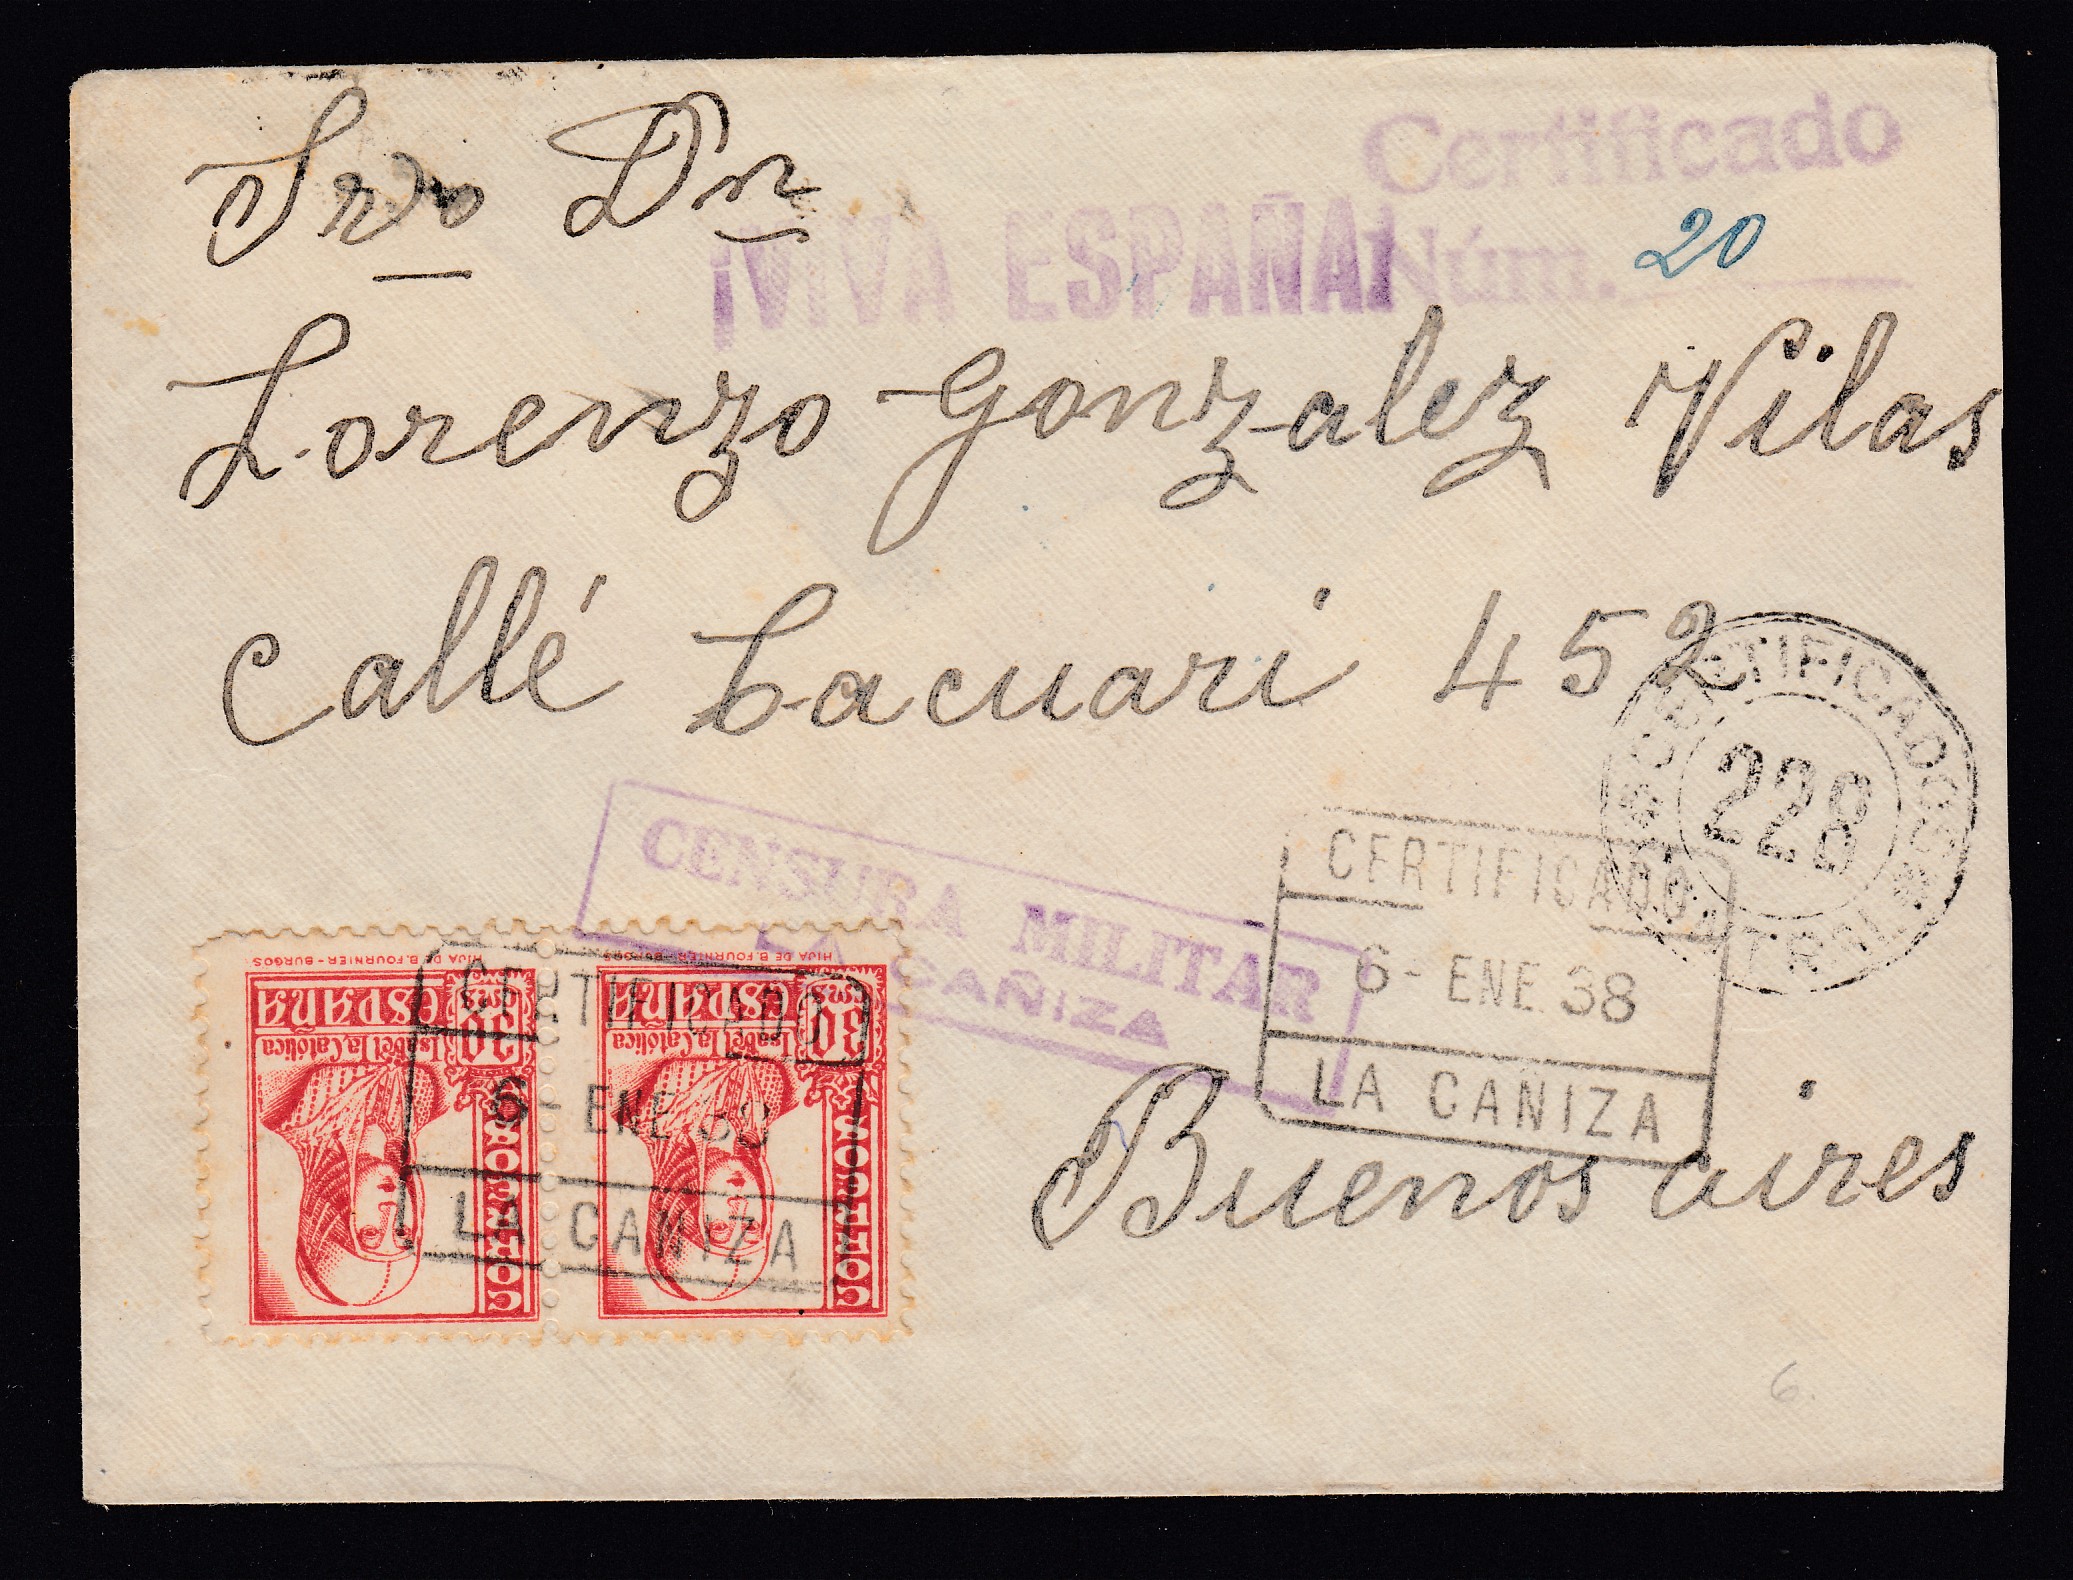 Certificado
Srvo Dn
¡VIVA ESPAÑA!
Núm. 20
Lorenzo Gonzalez Vilas
Callé Lacuari 452
CERTIFICADOS
228
CENTRAL
CENSURA MILITAR
LA CAÑIZA
CERTIFICADO
6- ENE 38
LA CAÑIZA
HIJA DE B. FOURNIER - BURGOS
30 CTS
ESPAÑA
Isabel la Católica
CORREOS
HIJA DE B. FOURNIER - BURGOS
30 CTS
ESPAÑA
Isabel la Católica
CORREOS
CERTIFICADO
6- ENE 38
LA CAÑIZA
Buenos aires
6.